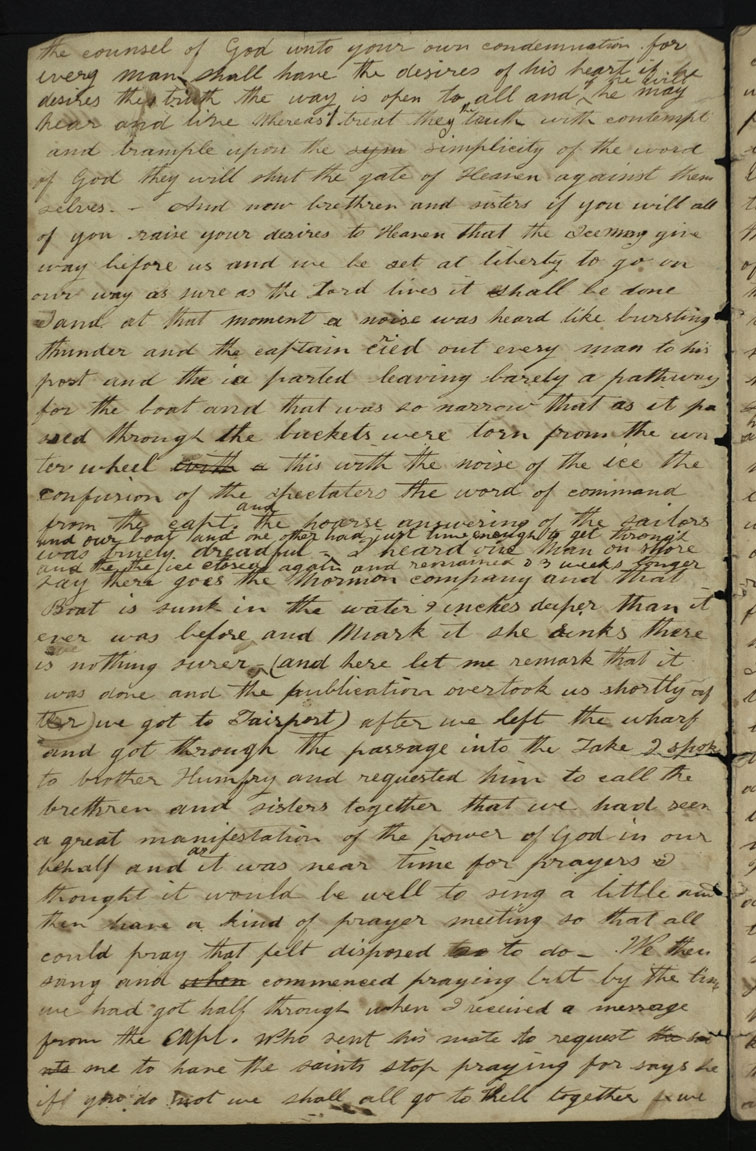 the counsel of God unto your own condemnation for
every man shall have the desires of his heart if he
desires the truth the way is open to all and if he will he may
hear and live whereas if treat they the truth with contempt
and trample upon the sym simplicity of the word
of God they will shut the gate of Heaven against them
selves. - And now brethren and sisters if you will all
of you raise your desires to Heaven that the Ice may give
way before us and we be set at liberty to go on
our way as sure as the Lord lives it shall be done
and at that moment a noise was heard like bursting
thunder and the captain cried out every man to his
post and the ice parted leaving barely a pathway
for the boat and that was so narrow that as it pa
ssed through the buckets were torn from the wa
ter wheel with a this with the noise of the ice the
confusion of the spectaters the word of command
from the capt. and the hoerse answering of the sailors
and our boat and one other had just time enough to get through
was truely dreadful - I heard one man on shore
and the the ice closed again and remained 3 weeks longer
say there goes the Mormon company and that
Boat is sunk in the water 9 inches deeper than it
ever was before and Mark it she sinks there
is nothing surer - (and here let me remark that it
was done and the publication overtook us shortly af
ter we got to Fairport) after we left the wharf
and got through the passage into the Lake I spoke
to brother Humfry and requested him to call the
brethren and sisters together that we had seen
a great manifestation of the power of God in our
behalf and as it was near time for prayers I
thought it would be well to sing a little and
then have a kind of prayer meeting so that all
could pray that felt disposed to do - We then
sang and when commenced praying but by the time
we had got half through when I received a message
from the Capt. who sent his mate to request the sai
nts me to have the saints stop praying for says he
if you do not we shall all go to hell together & we